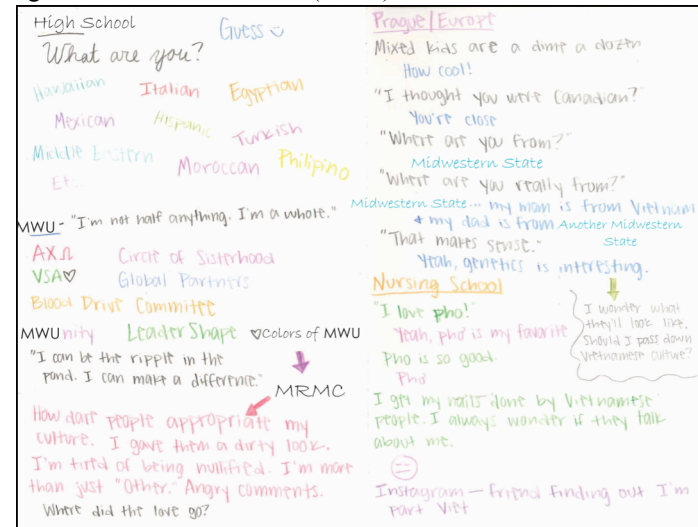 High School
Guess
What are you?
Hawaiian Italian Egyptian
Mexican Hispanic Turkish
Middle Eastern Moroccan Philipino
Etc.
MWU - "I'm not half anything. I'm a whole."
AXΩ Circle of Sisterhood
VSA♡ Global Partners
Blood Drive Committee
MWUnity LeaderShape ♡Colors of MWU
"I can be the ripple in the
pond. I can make a difference."
MRMC
How dare people appropriate my
culture. I gave them a dirty look.
I'm tired of being nullified. I'm more
than just "Other." Angry comments.
Where did the love go?
Prague/Europe
Mixed kids are a dime a dozen
How cool!
"I thought you were Canadian?"
You're close
"Where are you from?"
Midwestern State
"Where are you really from?"
Midwestern State... my mom is from Vietnam
+ my dad is from Another Midwestern
State
"That makes sense."
Yeah, genetics is interesting.
Nursing School
"I love pho!"
Yeah, pho is my favorite
Pho is so good.
Pho
I wonder what
they'll look like.
Should I pass down
Vietnamese culture?
I get my nails done by Vietnamese
people. I always wonder if they talk
about me.
Instagram — friend finding out I'm
part Viet